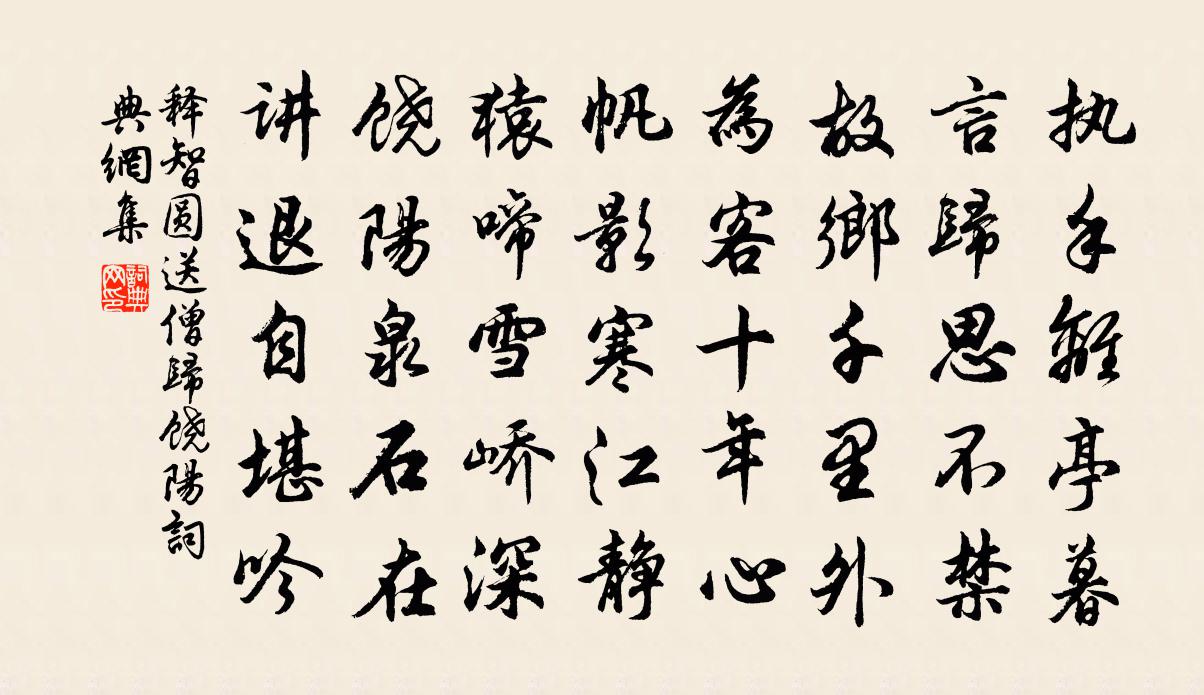 执手離亭暮
言歸思不禁
故鄉千里外
為客十年心
帆影寒江静
猿啼雪峤深
饶陽泉石在
讲退自堪吟
释智圆送僧歸饶陽詞
典網集
詞典
网印